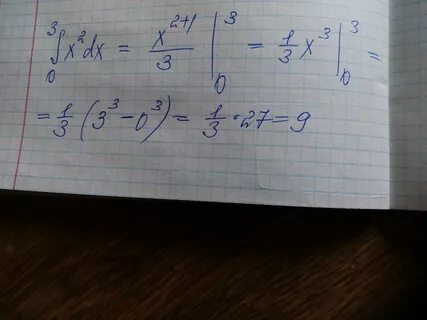 ∫₀³ x²dx = x²⁺¹/3 |₀³ = 1/3 x³ |₀³ =
= 1/3 (3³ - 0³) = 1/3 · 27 = 9